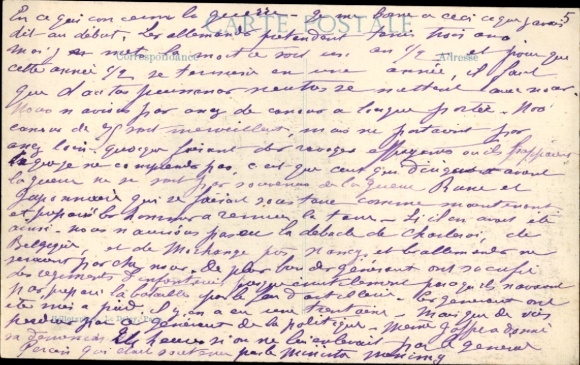 CARTE POSTALE
5
En ce qui concerne la guerre
dit au début, les allemands prétendent tenir trois ans.
moi, je met la mort ce soit un an 1/2, et pour que
Correspondance
Adresse
cette année 1/2 se termine en une année, il faut
que d'autres puissances neutres se mettent avec nous.
Nous n'avions pas assez de canons a longue portée. Nos
canons de 75 sont merveilleux, mais ne portaient pas
assez loin. quoique faisant des ravages effrayants ou ils frappaient
je ne comprends pas, c'est que ceux qui dirigeaient avant
la guerre ne se sont pas souvenus de la guerre Russe et
Japonnaise qui se faisait sous terre comme maintenant
et préparé les hommes a remuer la terre. Si il en avait été
ainsi. nous n'aurions pas eu la débacle de Charleroi, de
Belgique, et de Morhange près Nancy, et les allemands ne
seraient pas chez nous. De plus bon des généraux ont sacrifié
des régiments d'infanterie parce qu'ils n'avaient
pas préparé la bataille par le feu d'artillerie. les généraux ont
été mis a pied, il y en a eu une trentaine. Mais que de vies
perdues par ces généraux de la politique. Même Joffre a donné
sa démission 24 heures si on ne lui enlevait pas le général
qui était soutenu par le Ministre